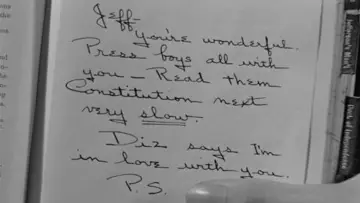 Jeff-
you're wonderful.
Press boys all with
you - Read them
Constitution next
very slow.
Diz says I'm
in love with you.
P.S.